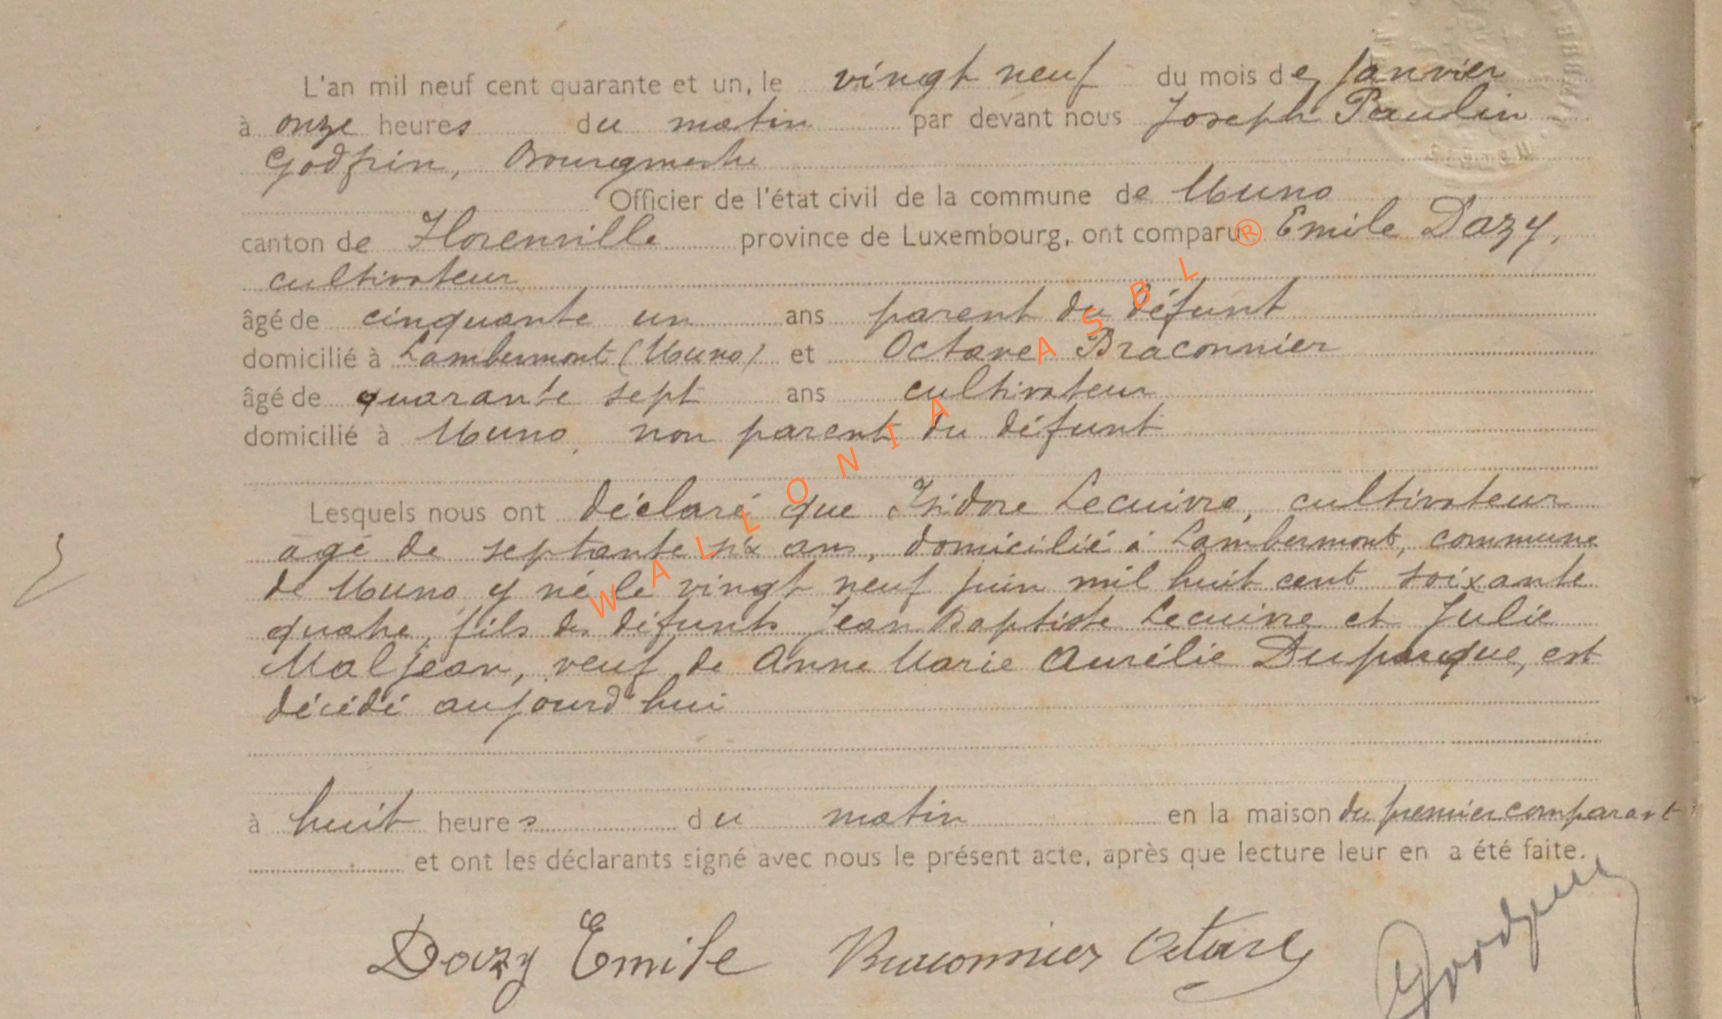 L'an mil neuf cent quarante et un, le vingt neuf du mois de Janvier
à onze heures du matin par devant nous Joseph Paulin
Godfrin, Bourgmestre
Officier de l'état civil de la commune de Muno
canton de Florenville province de Luxembourg, ont comparu Emile Dazy,
cultivateur
âgé de cinquante un ans parent du défunt
domicilié à Lambermont (Muno) et Octave Braconnier
âgé de quarante sept ans cultivateur
domicilié à Muno, non parent du défunt
Lesquels nous ont déclaré que Isidore Lecuivre, cultivateur
agé de septante six ans, domicilié à Lambermont, commune
de Muno y né le vingt neuf juin mil huit cent soixante
quatre, fils des défunts Jean Baptiste Lecuivre et Julie
Maljean, veuf de Anne Marie Aurélie Duparque, est
décédé aujourd'hui
à huit heures du matin en la maison du premier comparant
et ont les déclarants signé avec nous le présent acte, après que lecture leur en a été faite.
Dazy Emile Braconnier Octave
WALLONIA ASBL ®